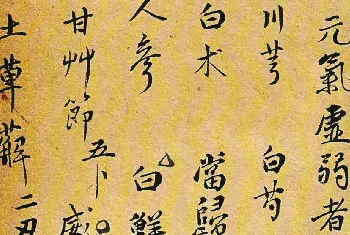 元氣虛弱者
川芎 白芍
白术 當歸
人參 白鮮
甘艸節五卜 威
土萆薢二丑